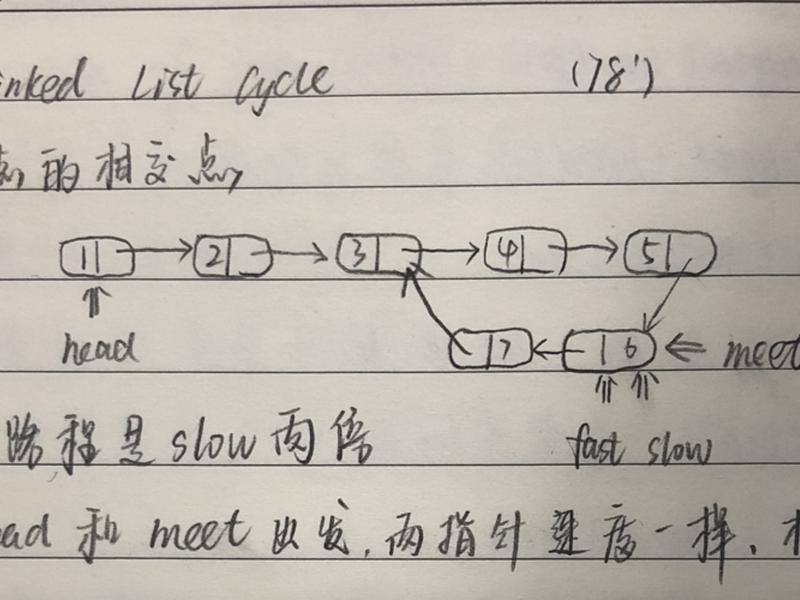 List Cycle (78')
的相交点
1 2 3 4 5
head 7 6 meet
路程是slow两倍 fast slow
和meet出发,两指针速度一样,